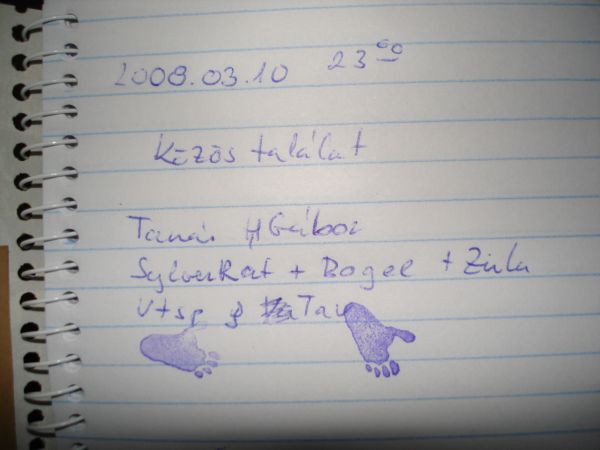 2008.03.10 23 00
Közös találat
Tamás Gábor
SylverRat + Bogel + Zula